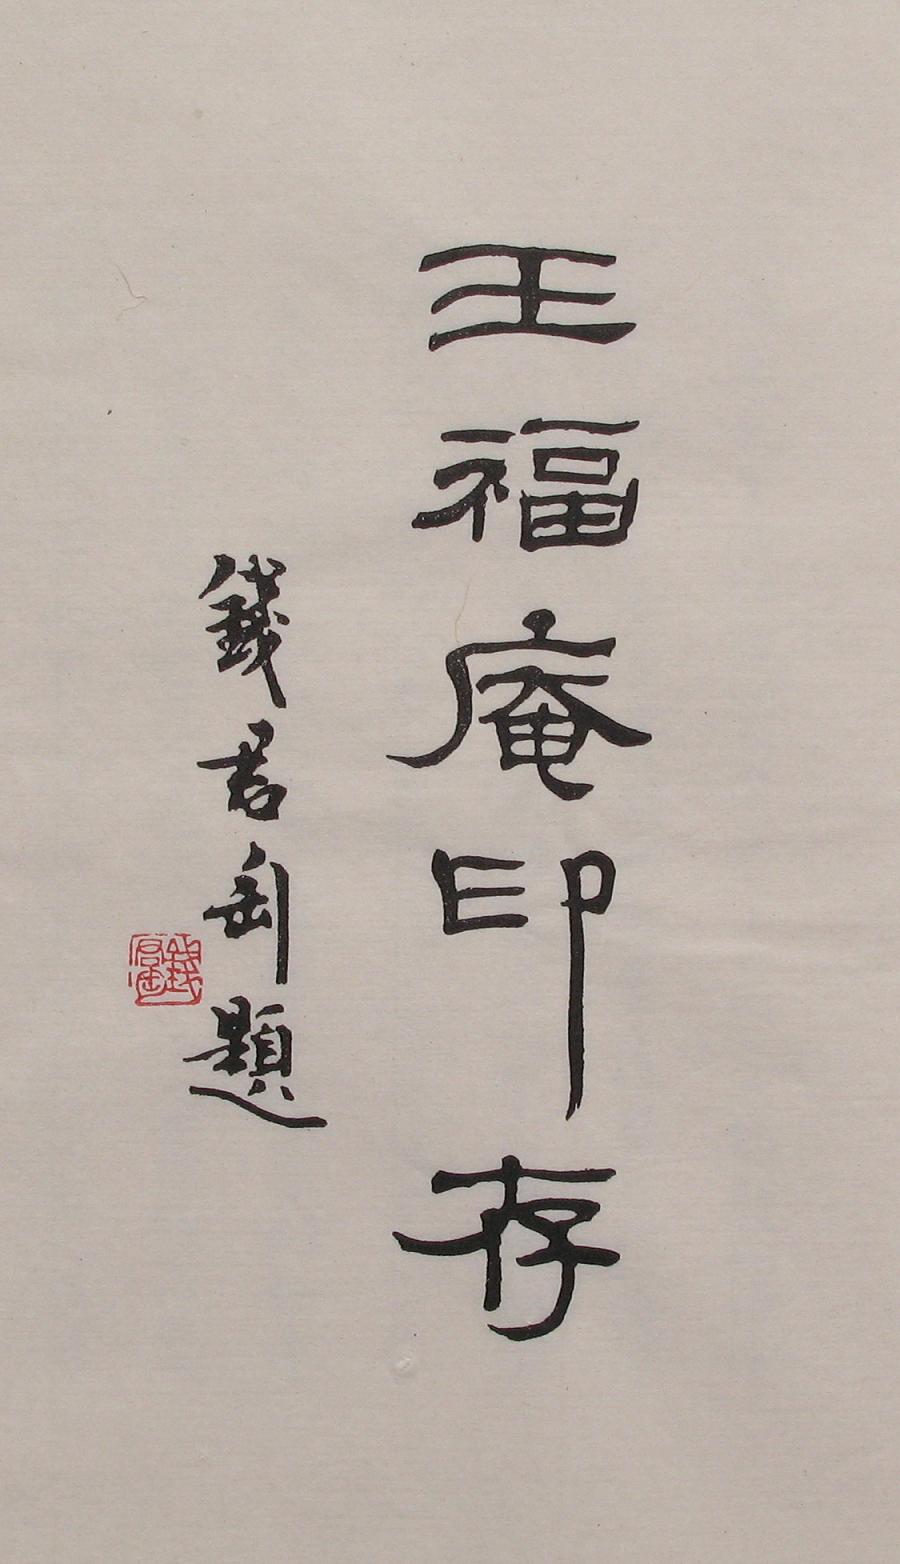 王福庵印存
錢君匋題
錢君匋